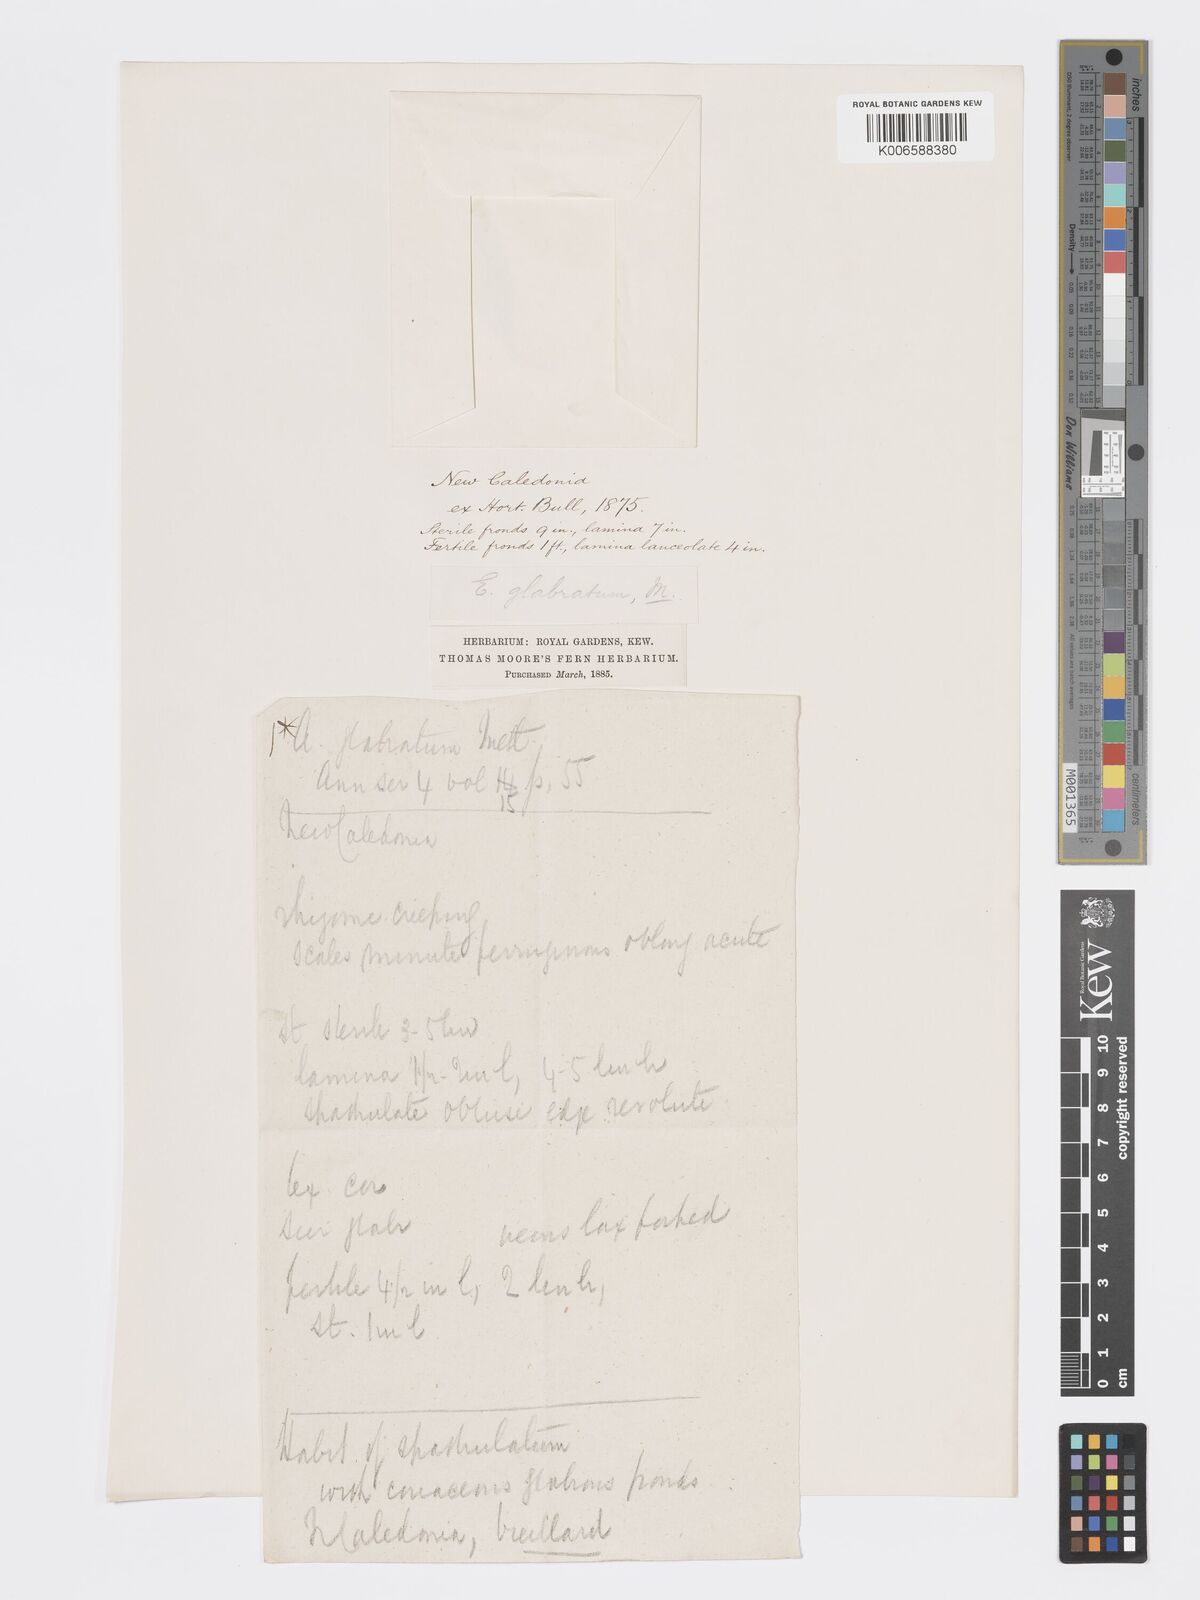 ROYAL BOTANIC GARDENS KEW
K006588380
New Caledonia
ex Hort. Bull, 1875.
Sterile fronds 9 in., lamina 7 in.
Fertile fronds 1 ft., lamina lanceolate 4 in.
E. glabratum, M.
HERBARIUM: ROYAL GARDENS, KEW.
THOMAS MOORE'S FERN HERBARIUM.
PURCHASED March, 1885.
A. glabratum Mett.
Ann ser 4 vol 15 p. 55
New Caledonia
rhizome creeping
scales minute ferruginous oblong acute
st sterile 3-5 lin
lamina 1½-2 in l, 4-5 lin br
spathulate obtuse edge revolute
tex cor
glabr veins lax forked
fertile 4½ in l, 2 lin br,
st. 1 in l
Habit of spathulatum
with coriaceous glabrous fronds
N Caledonia, Vieillard
inches
centimeters
Density
Don Williams
M001365
Kew
Royal Botanic Gardens
copyright reserved
0 1 2 3 4 5 6 7 8 9 10
cm